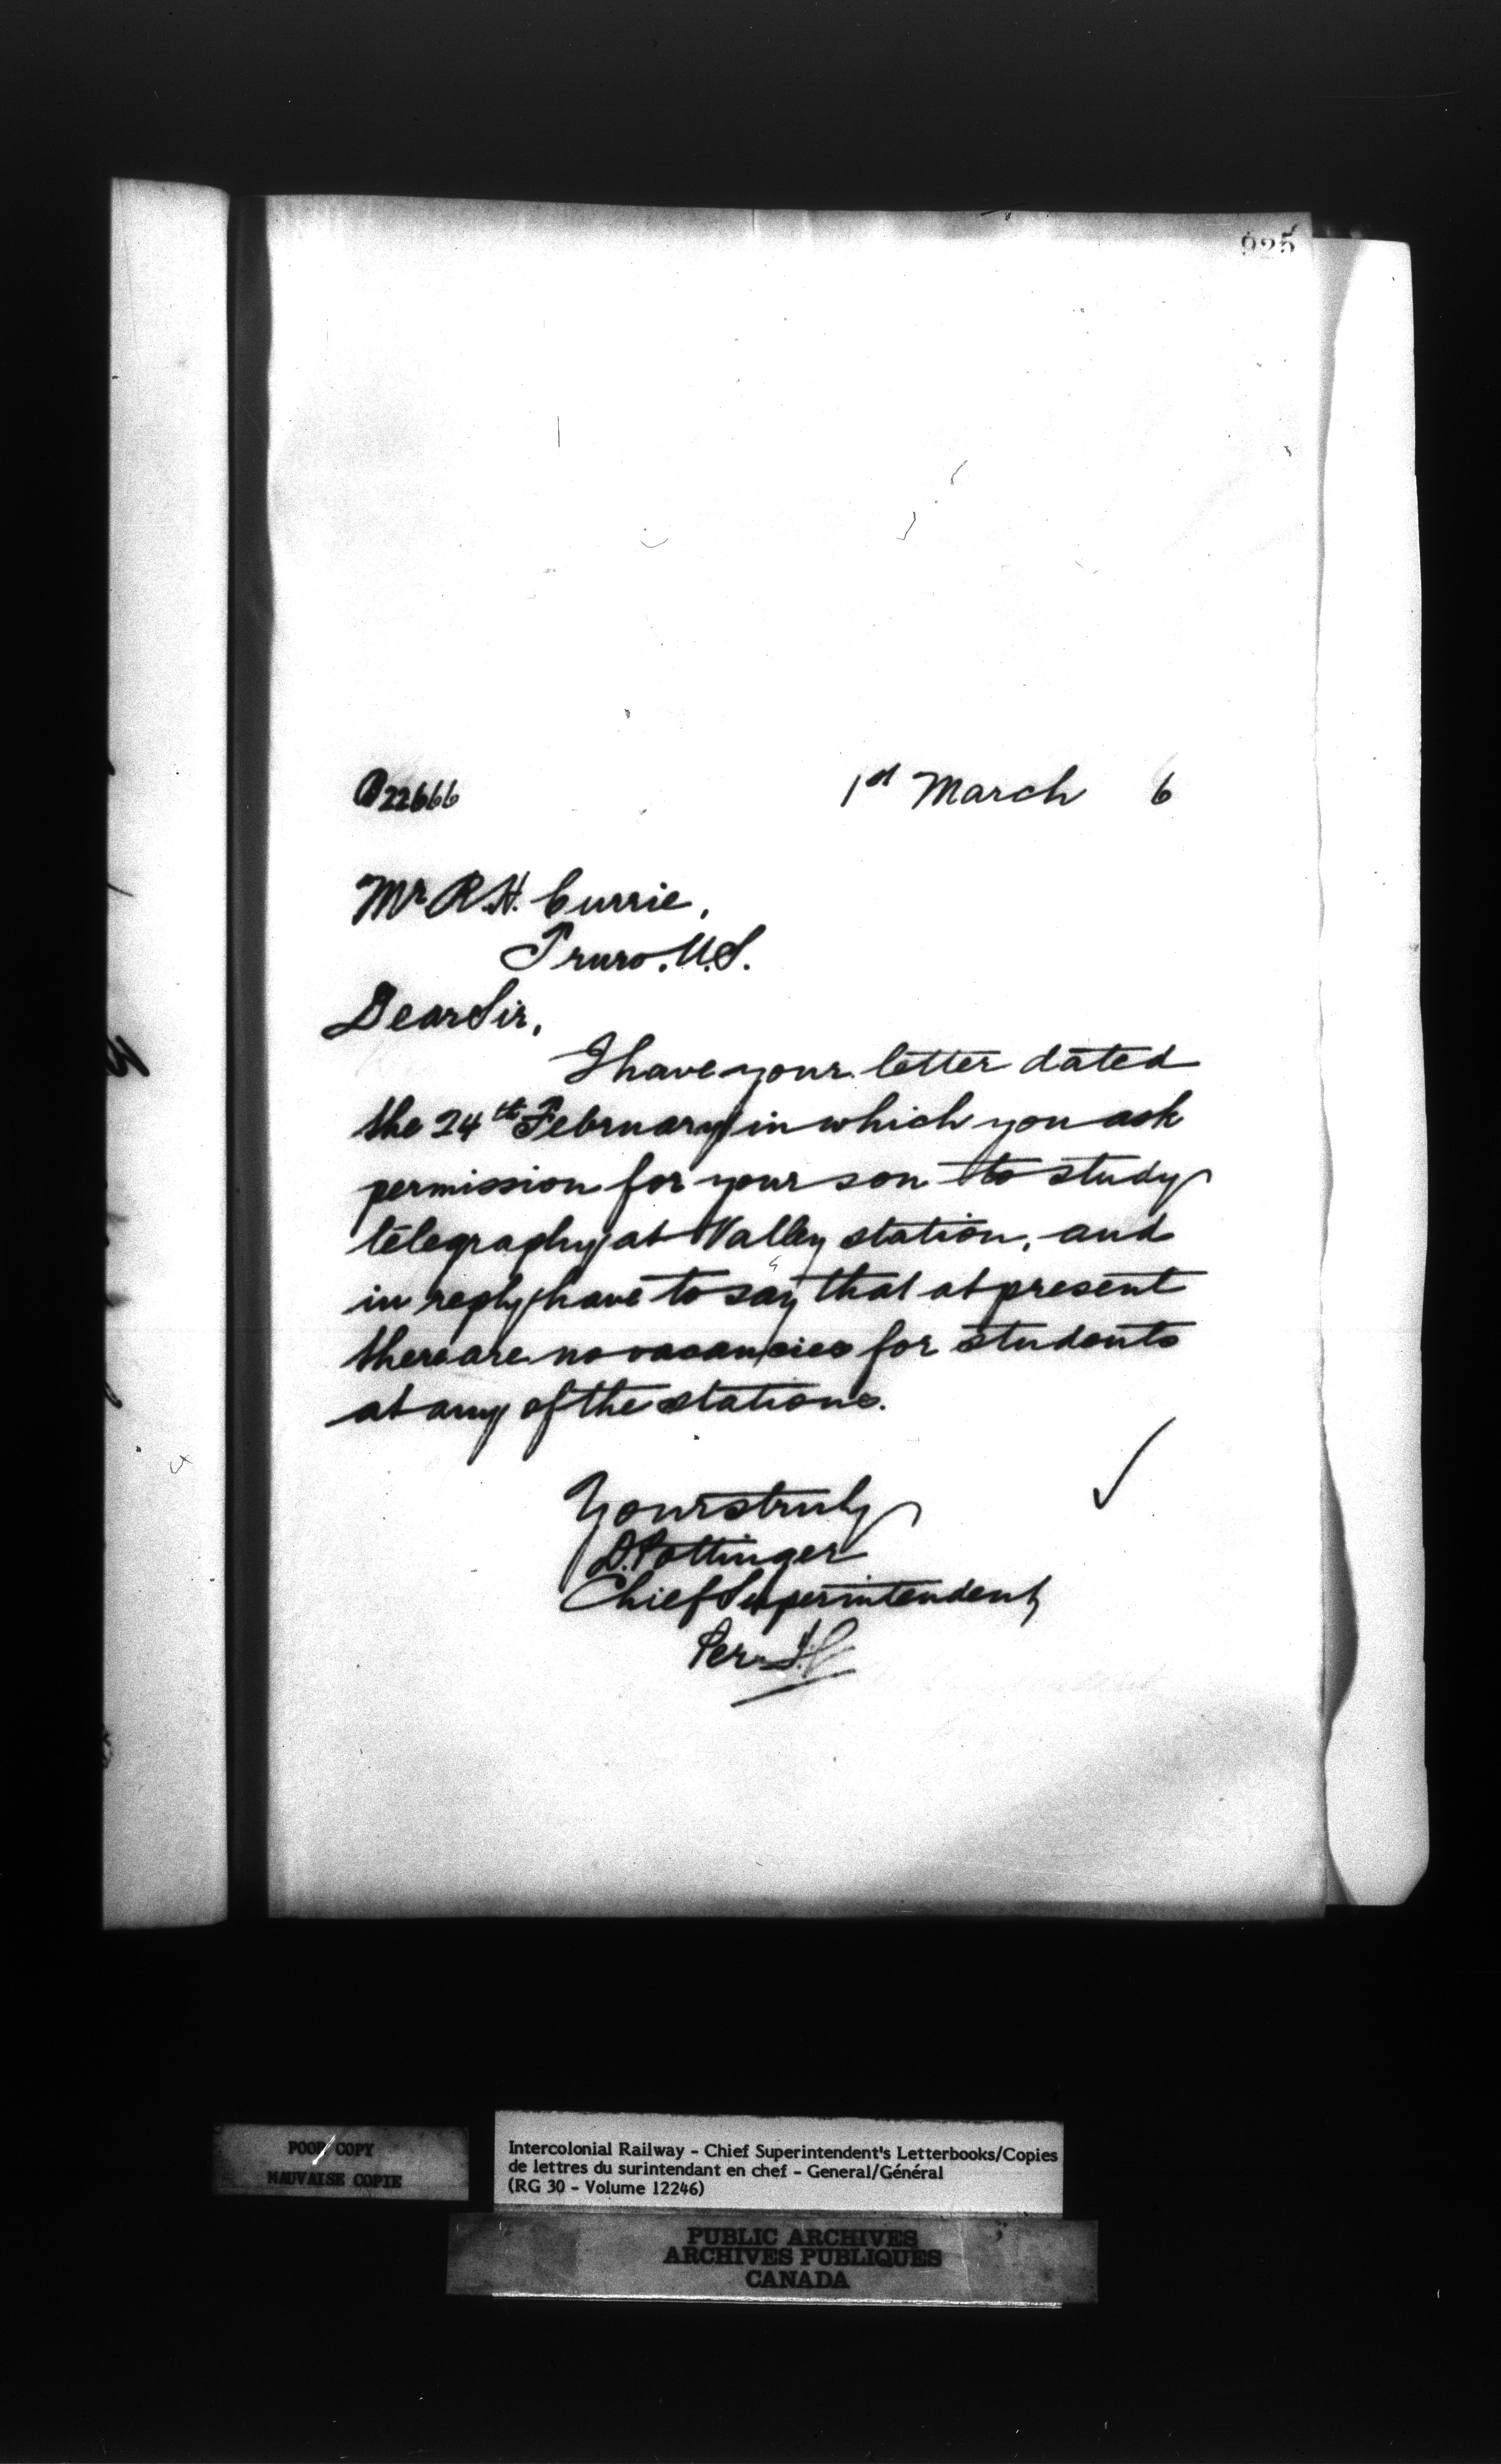 925
22666
1st March 6
Mr R.H. Currie,
Truro. N.S.
Dear Sir,
I have your letter dated
the 24th February in which you ask
permission for your son to study
telegraphy at Valley station, and
in reply have to say that at present
there are no vacancies for students
at any of the stations.
Yours truly
D. Pottinger
Chief Superintendent
Per
POOR COPY
MAUVAISE COPIE
Intercolonial Railway - Chief Superintendent's Letterbooks/Copies
de lettres du surintendant en chef - General/Général
(RG 30 - Volume 12246)
PUBLIC ARCHIVES
ARCHIVES PUBLIQUES
CANADA